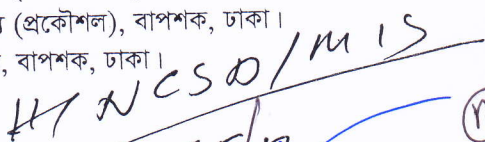 (প্রকৌশল), বাপশক, ঢাকা।
, বাপশক, ঢাকা।
NCSD/MIS